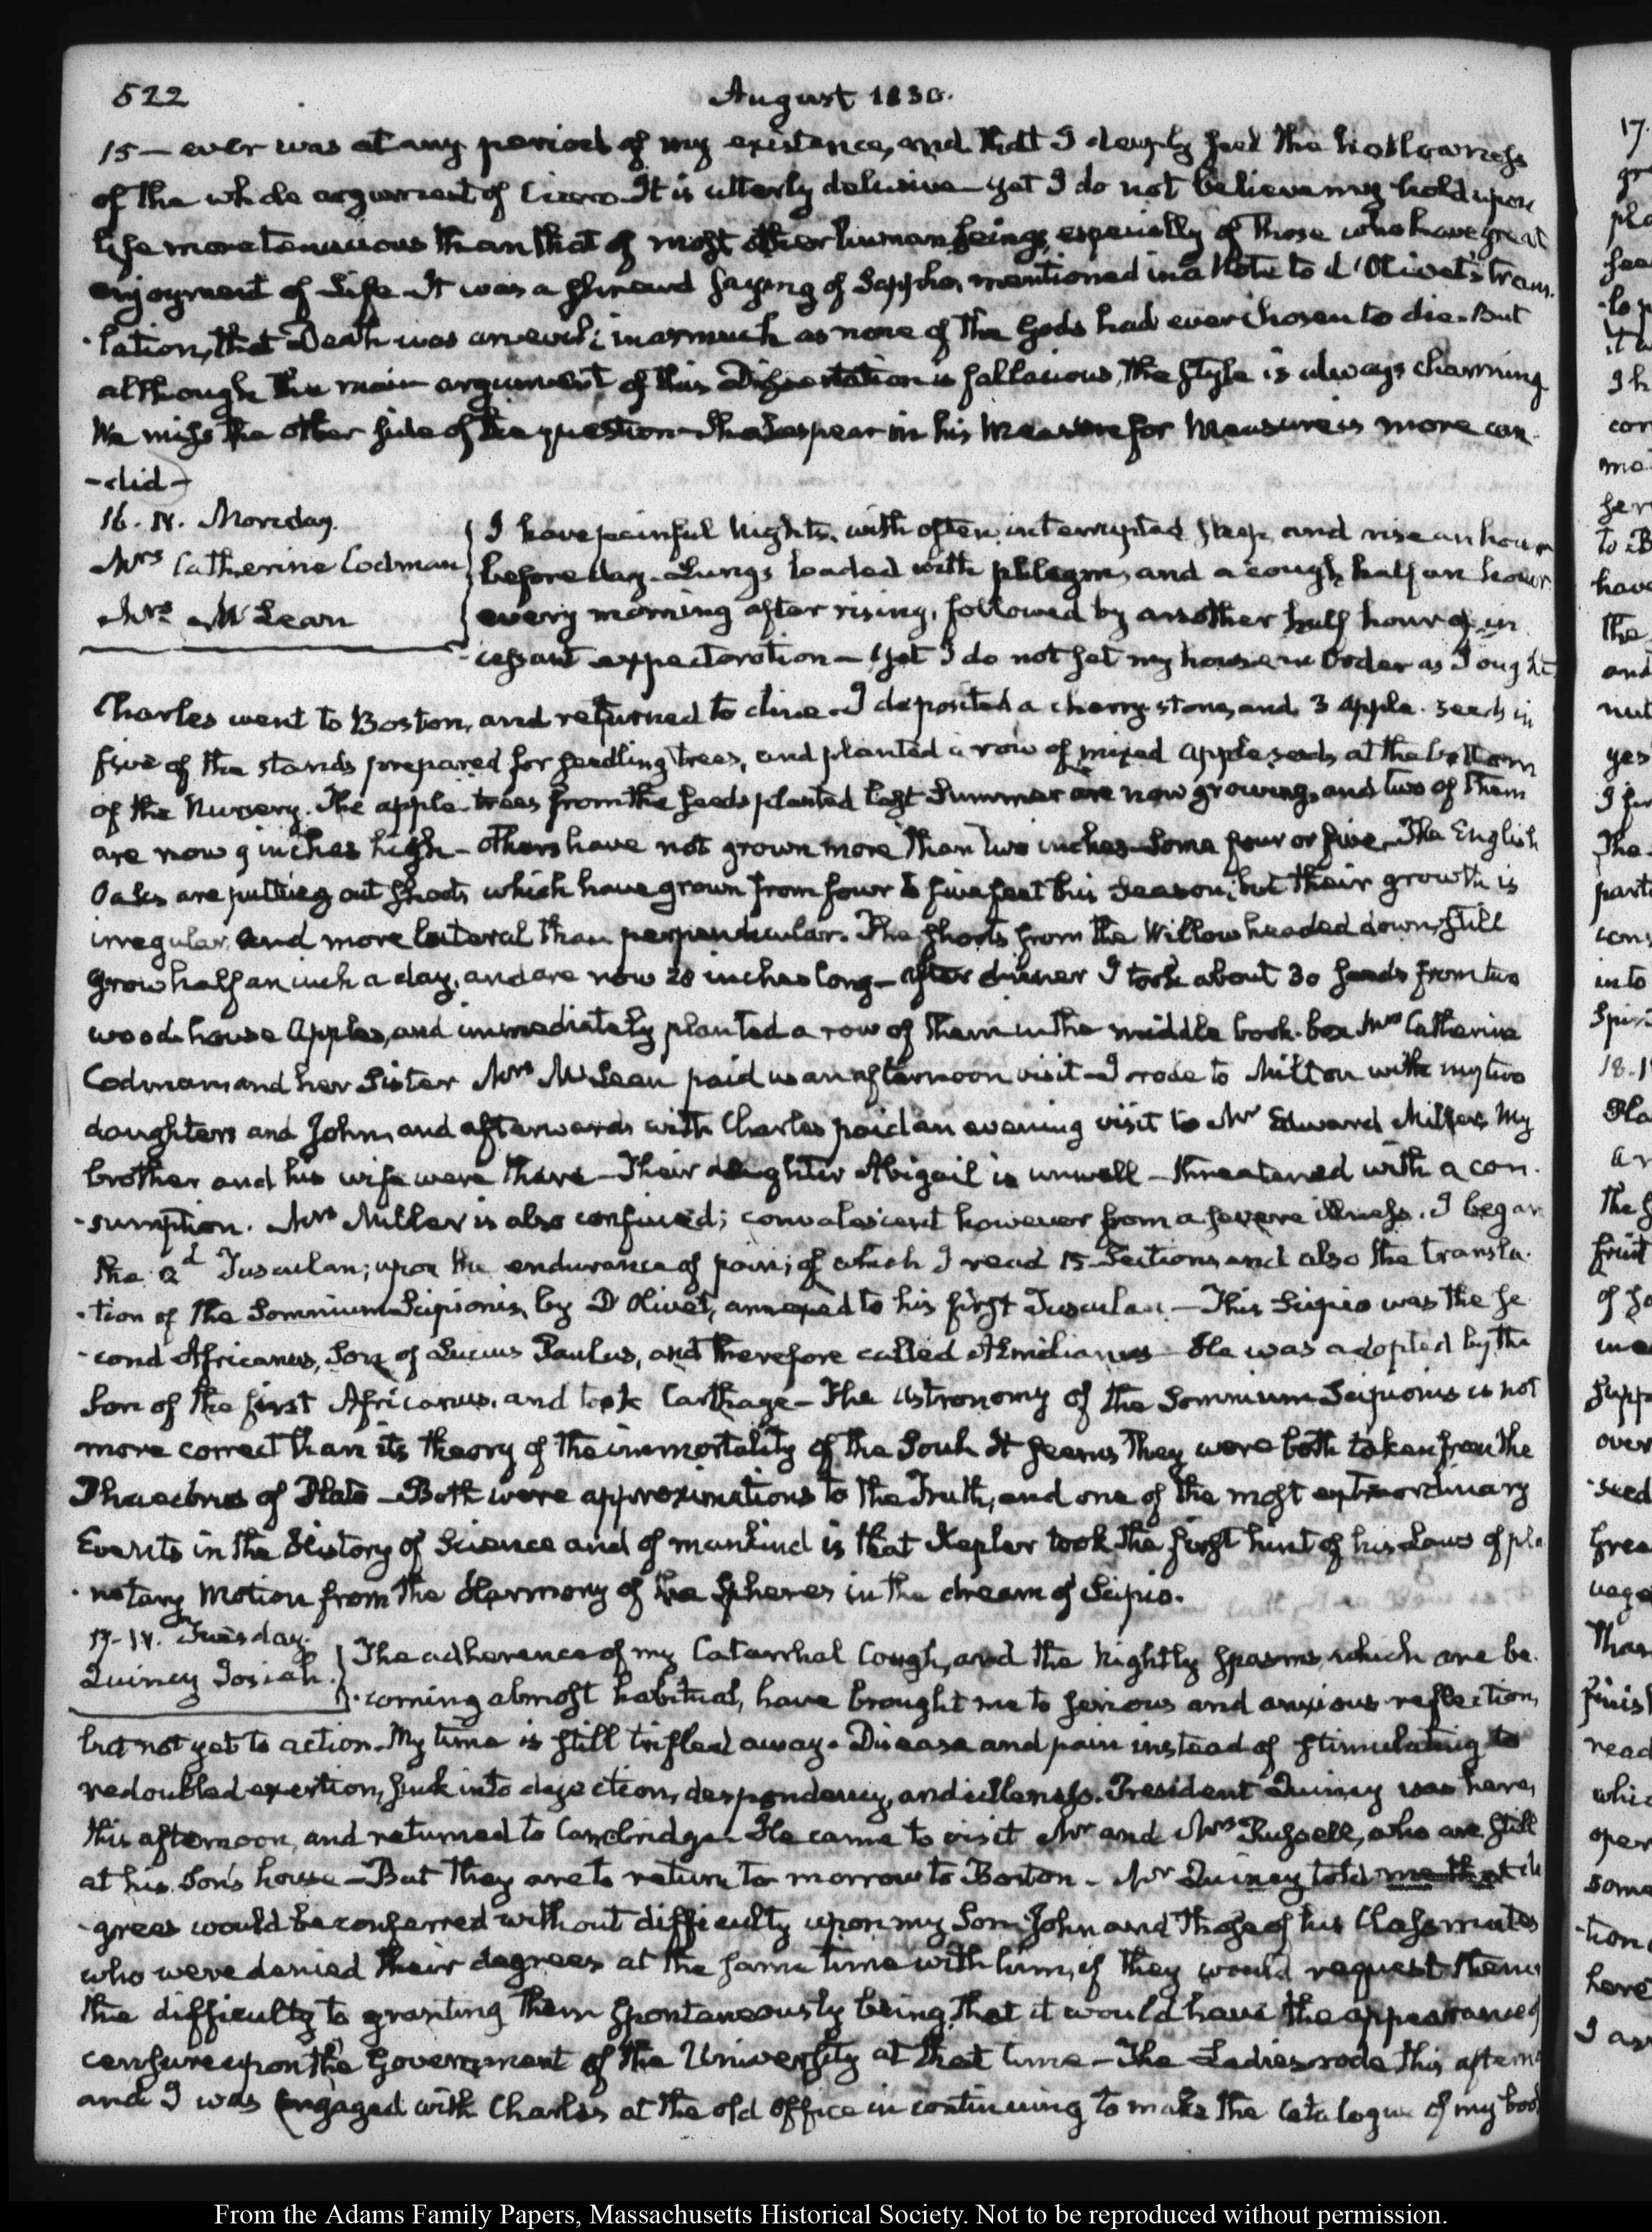 522
August 1830.
15 — ever was at any period of my existence, and that I deeply feel the hollowness
of the whole argument of Cicero. It is utterly delusive — yet I do not believe my hold upon
life more tenacious than that of most other human beings, especially of those who have great
enjoyment of Life. It was a shrewd saying of Sappho, mentioned in a Note to d'Olivet's trans-
-lation, that Death was an evil; inasmuch as none of the Gods had ever chosen to die. But
although the main argument of this Dissertation is fallacious, the style is always charming
We miss the other side of the question — Shakespear in his Measure for Measure is more can-
-did —
16. IV. Monday.
Mrs Catherine Codman
Mrs McLean
I have painful Nights, with often interrupted sleep, and rise an hour
before day. Lungs loaded with phlegm, and a cough half an hour
every morning after rising, followed by another half hour of in-
-cessant expectoration — Yet I do not set my house in Order as I ought
Charles went to Boston, and returned to dine. I deposited a cherry stone, and 3 apple seeds in
five of the stands prepared for seedling trees, and planted a row of mixed apple seeds at the bottom
of the Nursery. The apple trees from the seeds planted last Summer are now growing, and two of them
are now 9 inches high — others have not grown more than two inches — Some four or five. The English
Oaks are putting out shoots which have grown from four to five feet this Season; but their growth is
irregular, and more lateral than perpendicular. The shoots from the Willow headed down, still
grow half an inch a day, and are now 20 inches long — after dinner I took about 30 seeds from two
wood-house Apples, and immediately planted a row of them in the middle book-box Mrs Catherine
Codman and her Sister Mrs McLean paid us an afternoon visit — I rode to Milton with my two
daughters and John, and afterwards with Charles paid an evening visit to Mr Edward Miller's My
brother and his wife were there — Their daughter Abigail is unwell — threatened with a con-
-sumption. Mrs Miller is also confined; convalescent however from a severe illness. I began
the 2d Tusculan; upon the endurance of pain; of which I read 15 Sections, and also the transla-
-tion of the Somnium Scipionis, by D'Olivet, annexed to his first Tusculan — This Scipio was the se-
-cond Africanus, Son of Lucius Paulus, and therefore called Æmilianus — He was adopted by the
Son of the first Africanus, and took Carthage — The astronomy of the Somnium Scipionis is not
more correct than its theory of the immortality of the Soul. It seems they were both taken from the
Phaedrus of Plato — Both were approximations to the Truth, and one of the most extraordinary
Events in the History of Science and of mankind is that Kepler took the first hint of his Laws of pla-
-netary Motion from the Harmony of the Spheres in the dream of Scipio.
17. IV. Tuesday.
Quincy Josiah.
The adherence of my Catarrhal Cough, and the Nightly spasms which are be-
-coming almost habitual, have brought me to serious and anxious reflection,
but not yet to action. My time is still trifled away. Disease and pain instead of stimulating to
redoubled exertion, sink into dejection, despondency, and idleness. President Quincy was here,
this afternoon, and returned to Cambridge. He came to visit Mr and Mrs Russell, who are still
at his Son's house — But they are to return to morrow to Boston. Mr Quincy told me that de-
-grees would be conferred without difficulty upon my Son John and those of his Classmates
who were denied their degrees at the same time with him, if they would request them,
the difficulty to granting them spontaneously being, that it would have the appearance of
censure upon the Government of the University at that time — The Ladies rode this afternoon
and I was engaged with Charles at the old office in continuing to make the Catalogue of my books
17.
18.
From the Adams Family Papers, Massachusetts Historical Society. Not to be reproduced without permission.